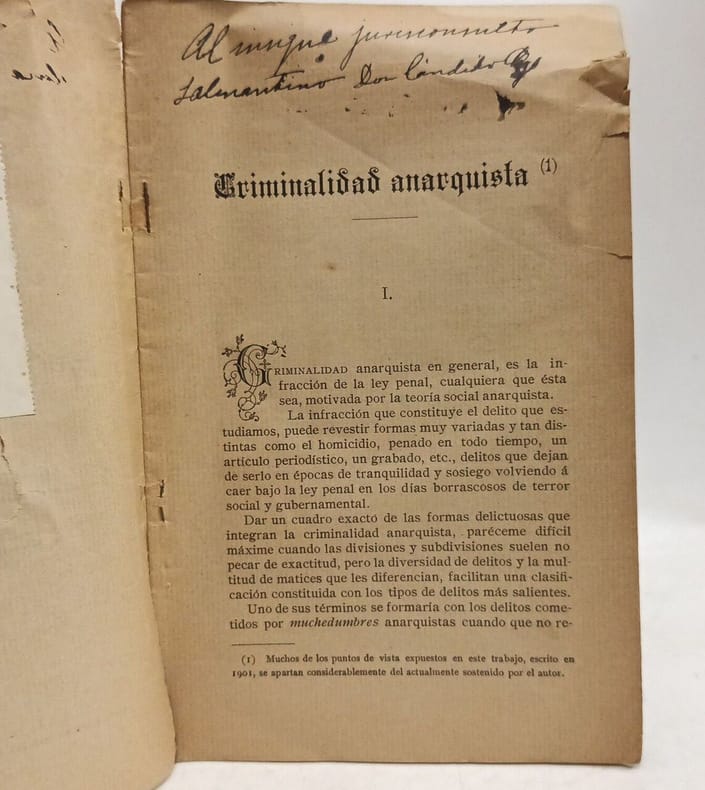 Al insigne jurisconsulto
salmantino Don Cándido
Criminalidad anarquista (1)
I.
CRIMINALIDAD anarquista en general, es la in-
fracción de la ley penal, cualquiera que ésta
sea, motivada por la teoría social anarquista.
La infracción que constituye el delito que es-
tudiamos, puede revestir formas muy variadas y tan dis-
tintas como el homicidio, penado en todo tiempo, un
artículo periodístico, un grabado, etc., delitos que dejan
de serlo en épocas de tranquilidad y sosiego volviendo á
caer bajo la ley penal en los días borrascosos de terror
social y gubernamental.
Dar un cuadro exacto de las formas delictuosas que
integran la criminalidad anarquista, paréceme difícil
máxime cuando las divisiones y subdivisiones suelen no
pecar de exactitud, pero la diversidad de delitos y la mul-
titud de matices que les diferencian, facilitan una clasifi-
cación constituida con los tipos de delitos más salientes.
Uno de sus términos se formaría con los delitos come-
tidos por muchedumbres anarquistas cuando que no re-
(1) Muchos de los puntos de vista expuestos en este trabajo, escrito en
1901, se apartan considerablemente del actualmente sostenido por el autor.